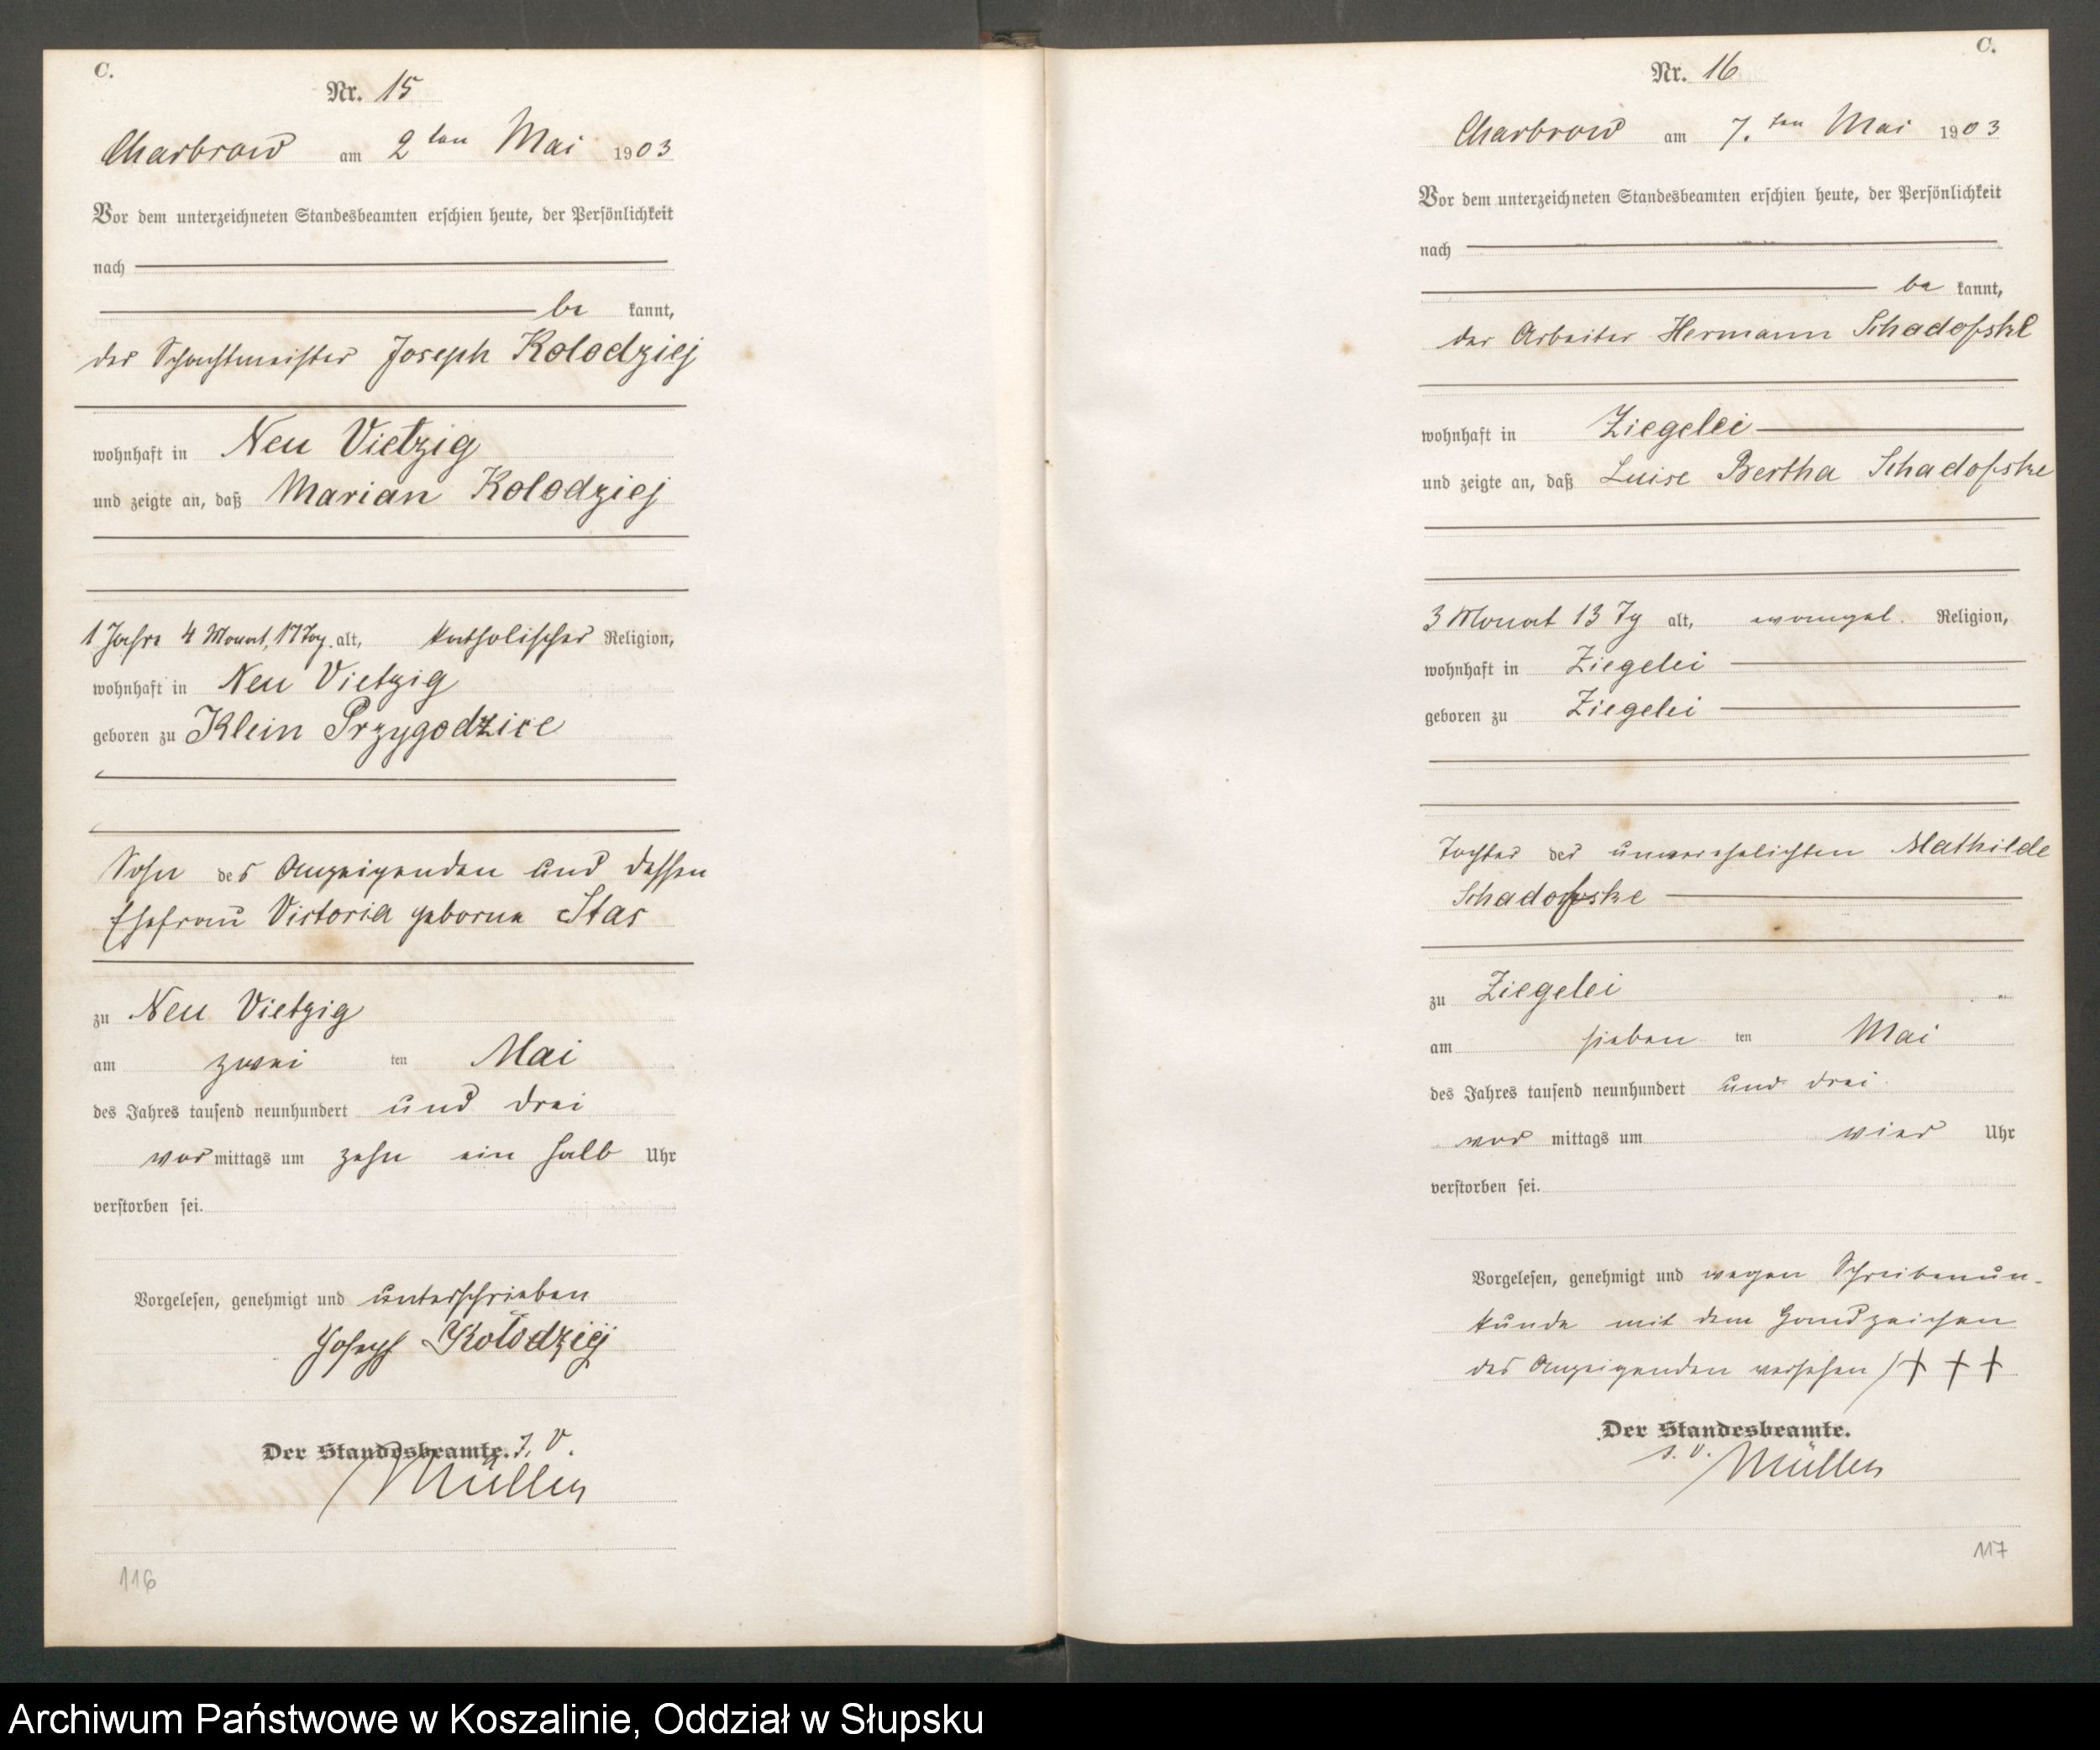 C.
Nr. 15
Charbrow am 2ten Mai 1903
Vor dem unterzeichneten Standesbeamten erschien heute, der Persönlichkeit
nach
be kannt,
der Schachtmeister Joseph Kolodziej
wohnhaft in Neu Vietzig
und zeigte an, daß Marian Kolodziej
1 Jahre 4 Monat, 17 Tag. alt, katholischer Religion,
wohnhaft in Neu Vietzig
geboren zu Klein Przygodzice
Sohn des Anzeigenden und dessen
Ehefrau Victoria geborne Stas
zu Neu Vietzig
am zwei ten Mai
des Jahres tausend neunhundert und drei
vor mittags um zehn ein halb Uhr
verstorben sei.
Vorgelesen, genehmigt und unterschrieben
Joseph Kołodziej
Der Standesbeamte. J. V.
Müller
116
C.
Nr. 16
Charbrow am 7.ten Mai 1903
Vor dem unterzeichneten Standesbeamten erschien heute, der Persönlichkeit
nach
be kannt,
der Arbeiter Hermann Schadofske
wohnhaft in Ziegelei
und zeigte an, daß Luise Bertha Schadofske
3 Monat 13 Tg alt, evangel. Religion,
wohnhaft in Ziegelei
geboren zu Ziegelei
Tochter der unverehelichten Mathilde
Schadofske
zu Ziegelei
am sieben ten Mai
des Jahres tausend neunhundert und drei
vor mittags um vier Uhr
verstorben sei.
Vorgelesen, genehmigt und wegen Schreibenun-
kunde mit dem Handzeichen
des Anzeigenden versehen / + + +
Der Standesbeamte.
J. V. Müller
117
Archiwum Państwowe w Koszalinie, Oddział w Słupsku